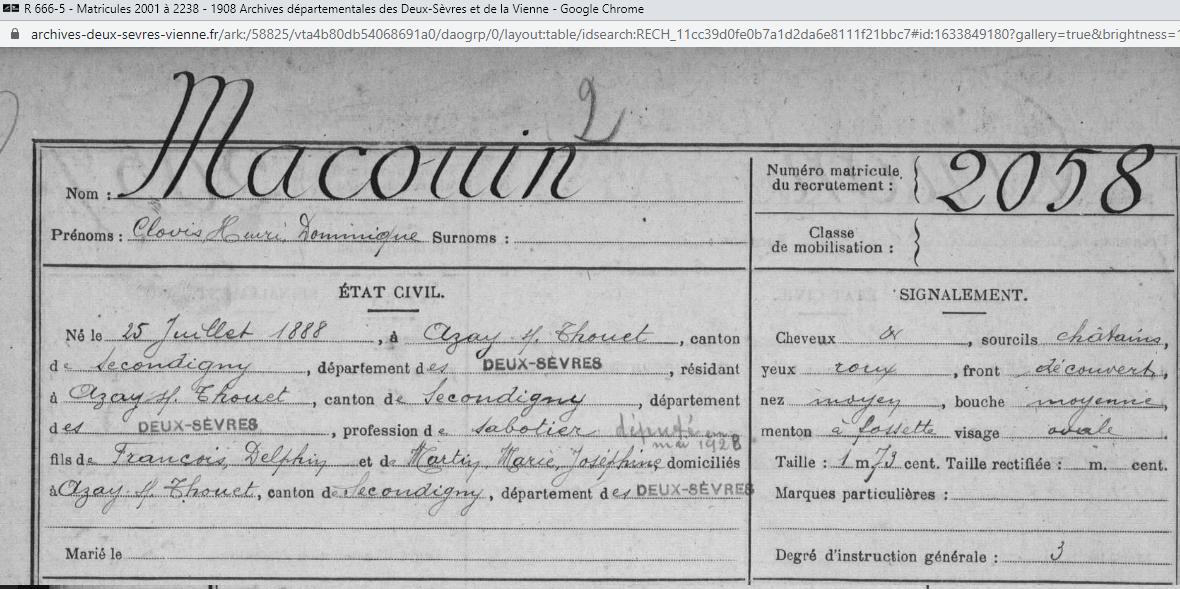 R 666-5 - Matricules 2001 à 2238 - 1908 Archives départementales des Deux-Sèvres et de la Vienne - Google Chrome
archives-deux-sevres-vienne.fr/ark:/58825/vta4b80db54068691a0/daogrp/0/layout:table/idsearch:RECH_11cc39d0fe0b7a1d2da6e8111f21bbc7#id:1633849180?gallery=true&brightness=1
2
Nom : Macouin
Prénoms : Clovis Henri, Dominique Surnoms :
Numéro matricule du recrutement : 2058
Classe de mobilisation :
ÉTAT CIVIL.
Né le 25 Juillet 1888, à Azay s/ Thouet, canton
de Secondigny, département des DEUX-SÈVRES, résidant
à Azay s/ Thouet, canton de Secondigny, département
des DEUX-SÈVRES, profession de sabotier député en mai 1928
fils de François, Delphin et de Martin, Marie, Joséphine domiciliés
à Azay s/ Thouet, canton de Secondigny, département des DEUX-SÈVRES
Marié le
SIGNALEMENT.
Cheveux &, sourcils châtains,
yeux roux, front découvert,
nez moyen, bouche moyenne,
menton à fossette visage ovale.
Taille : 1 m 73 cent. Taille rectifiée : m. cent.
Marques particulières :
Degré d'instruction générale : 3